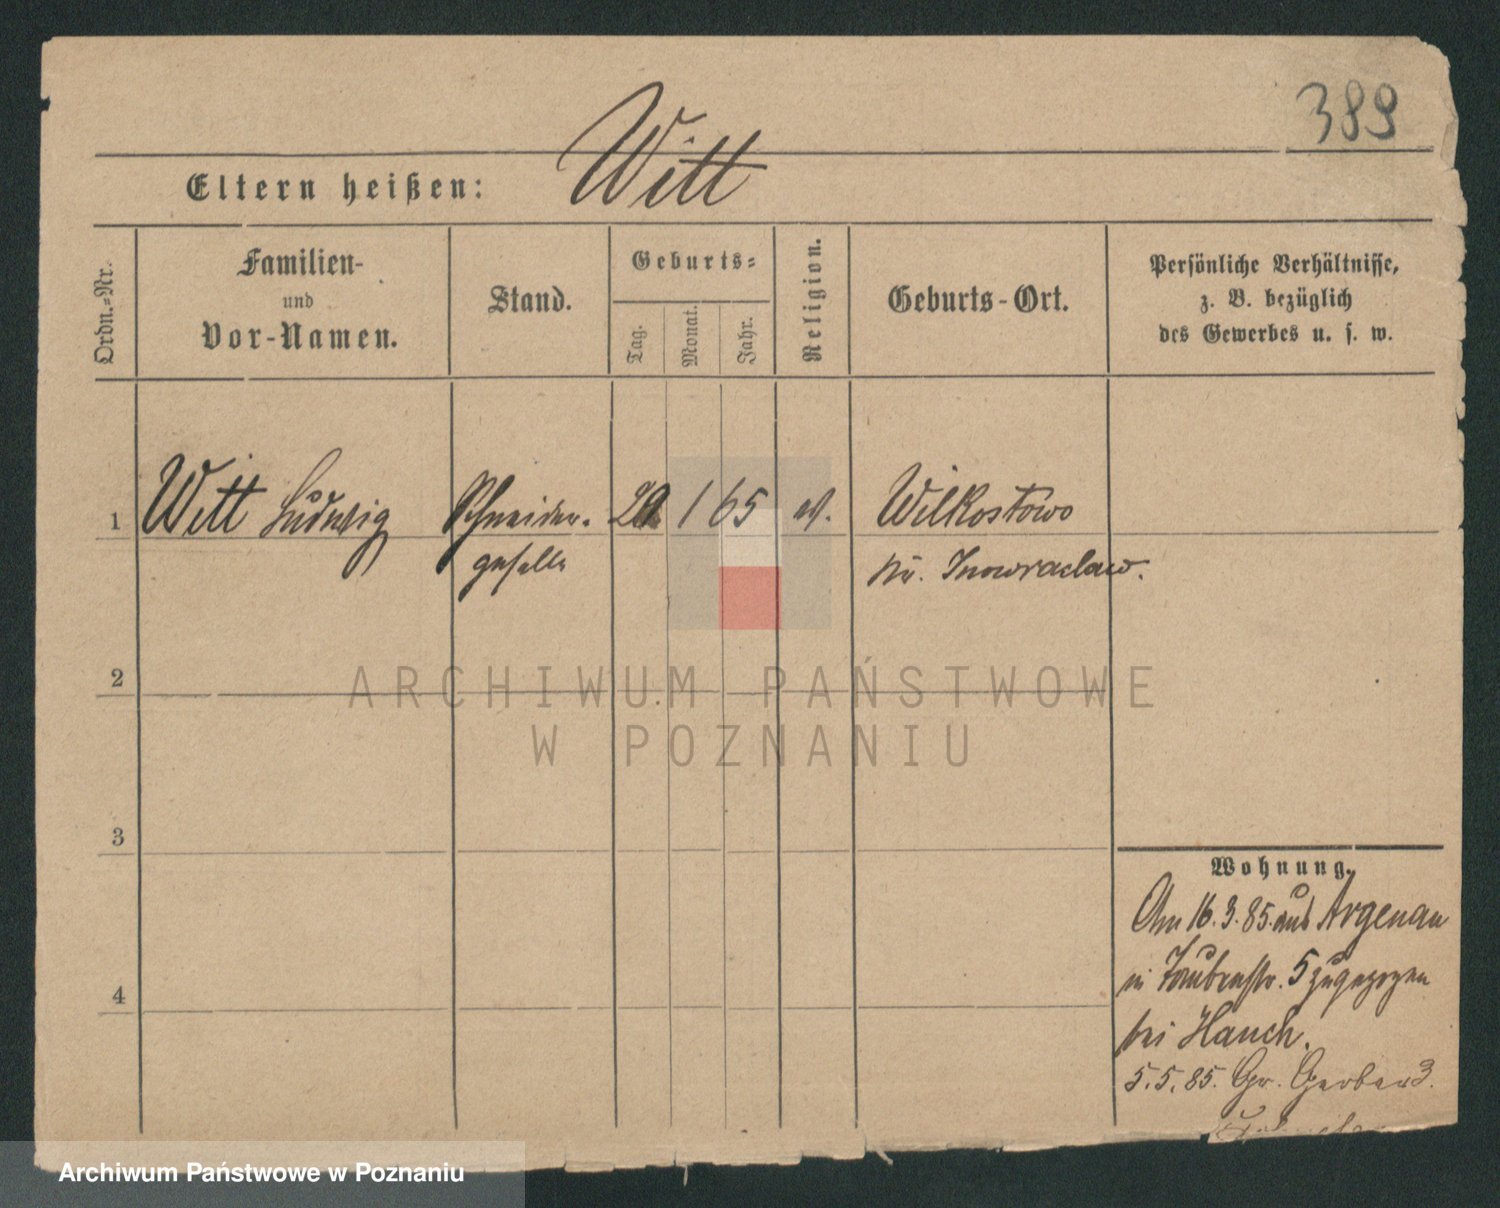 389
Witt
Eltern heißen:
Ordn.=Nr.
Familien-
und
Vor-Namen.
Stand.
Geburts=
Tag.
Monat.
Jahr.
Religion.
Geburts-Ort.
Persönliche Verhältnisse,
z. B. bezüglich
des Gewerbes u. s. w.
1 Witt Ludwig Schneider- 1 65 ev. Wilkostowo
geselle Kr. Inowraclaw.
2
ARCHIWUM PAŃSTWOWE
W POZNANIU
3
Wohnung.
Am 16.3.85. aus Argenau
in Taubenstr. 5 zugezogen
4
bei Hauch.
5.5.85. Gr. Gerber 3.
Archiwum Państwowe w Poznaniu